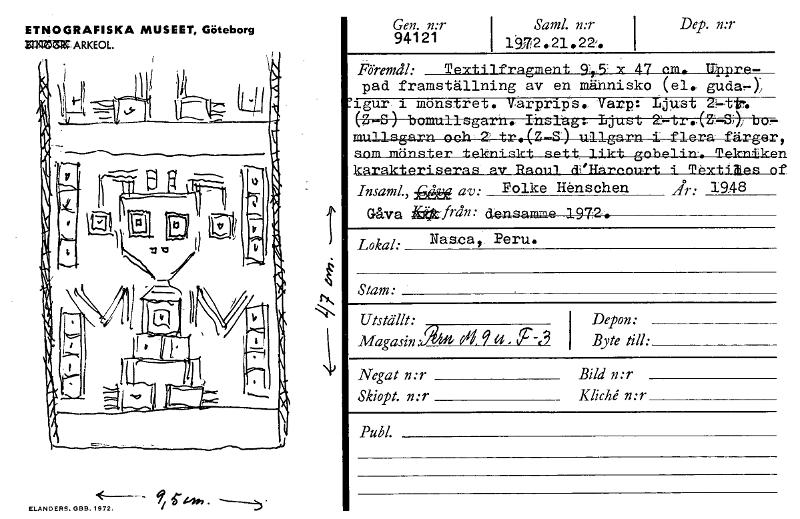 ETNOGRAFISKA MUSEET, Göteborg
ETNOGR. ARKEOL.
Gen. n:r
94121
Saml. n:r
1972.21.22.
Dep. n:r
Föremål: Textilfragment 9,5 x 47 cm. Uppre-
pad framställning av en människo (el. guda-)
figur i mönstret. Varprips. Varp: Ljust 2-tr.
(Z-S) bomullsgarn. Inslag: Ljust 2-tr.(Z-S) bo-
mullsgarn och 2 tr.(Z-S) ullgarn i flera färger,
som mönster tekniskt sett likt gobelin. Tekniken
karakteriseras av Raoul d'Harcourt i Textiles of
Insaml., Gåva av: Folke Henschen År: 1948
Gåva Köp från: densamme 1972.
Lokal: Nasca, Peru.
Stam:
Utställt:
Depon:
Magasin: Peru M.9 u. F-3
Byte till:
Negat n:r
Bild n:r
Skiopt. n:r
Kliché n:r
Publ.
47 cm.
9,5 cm.
ELANDERS, GBB. 1972.